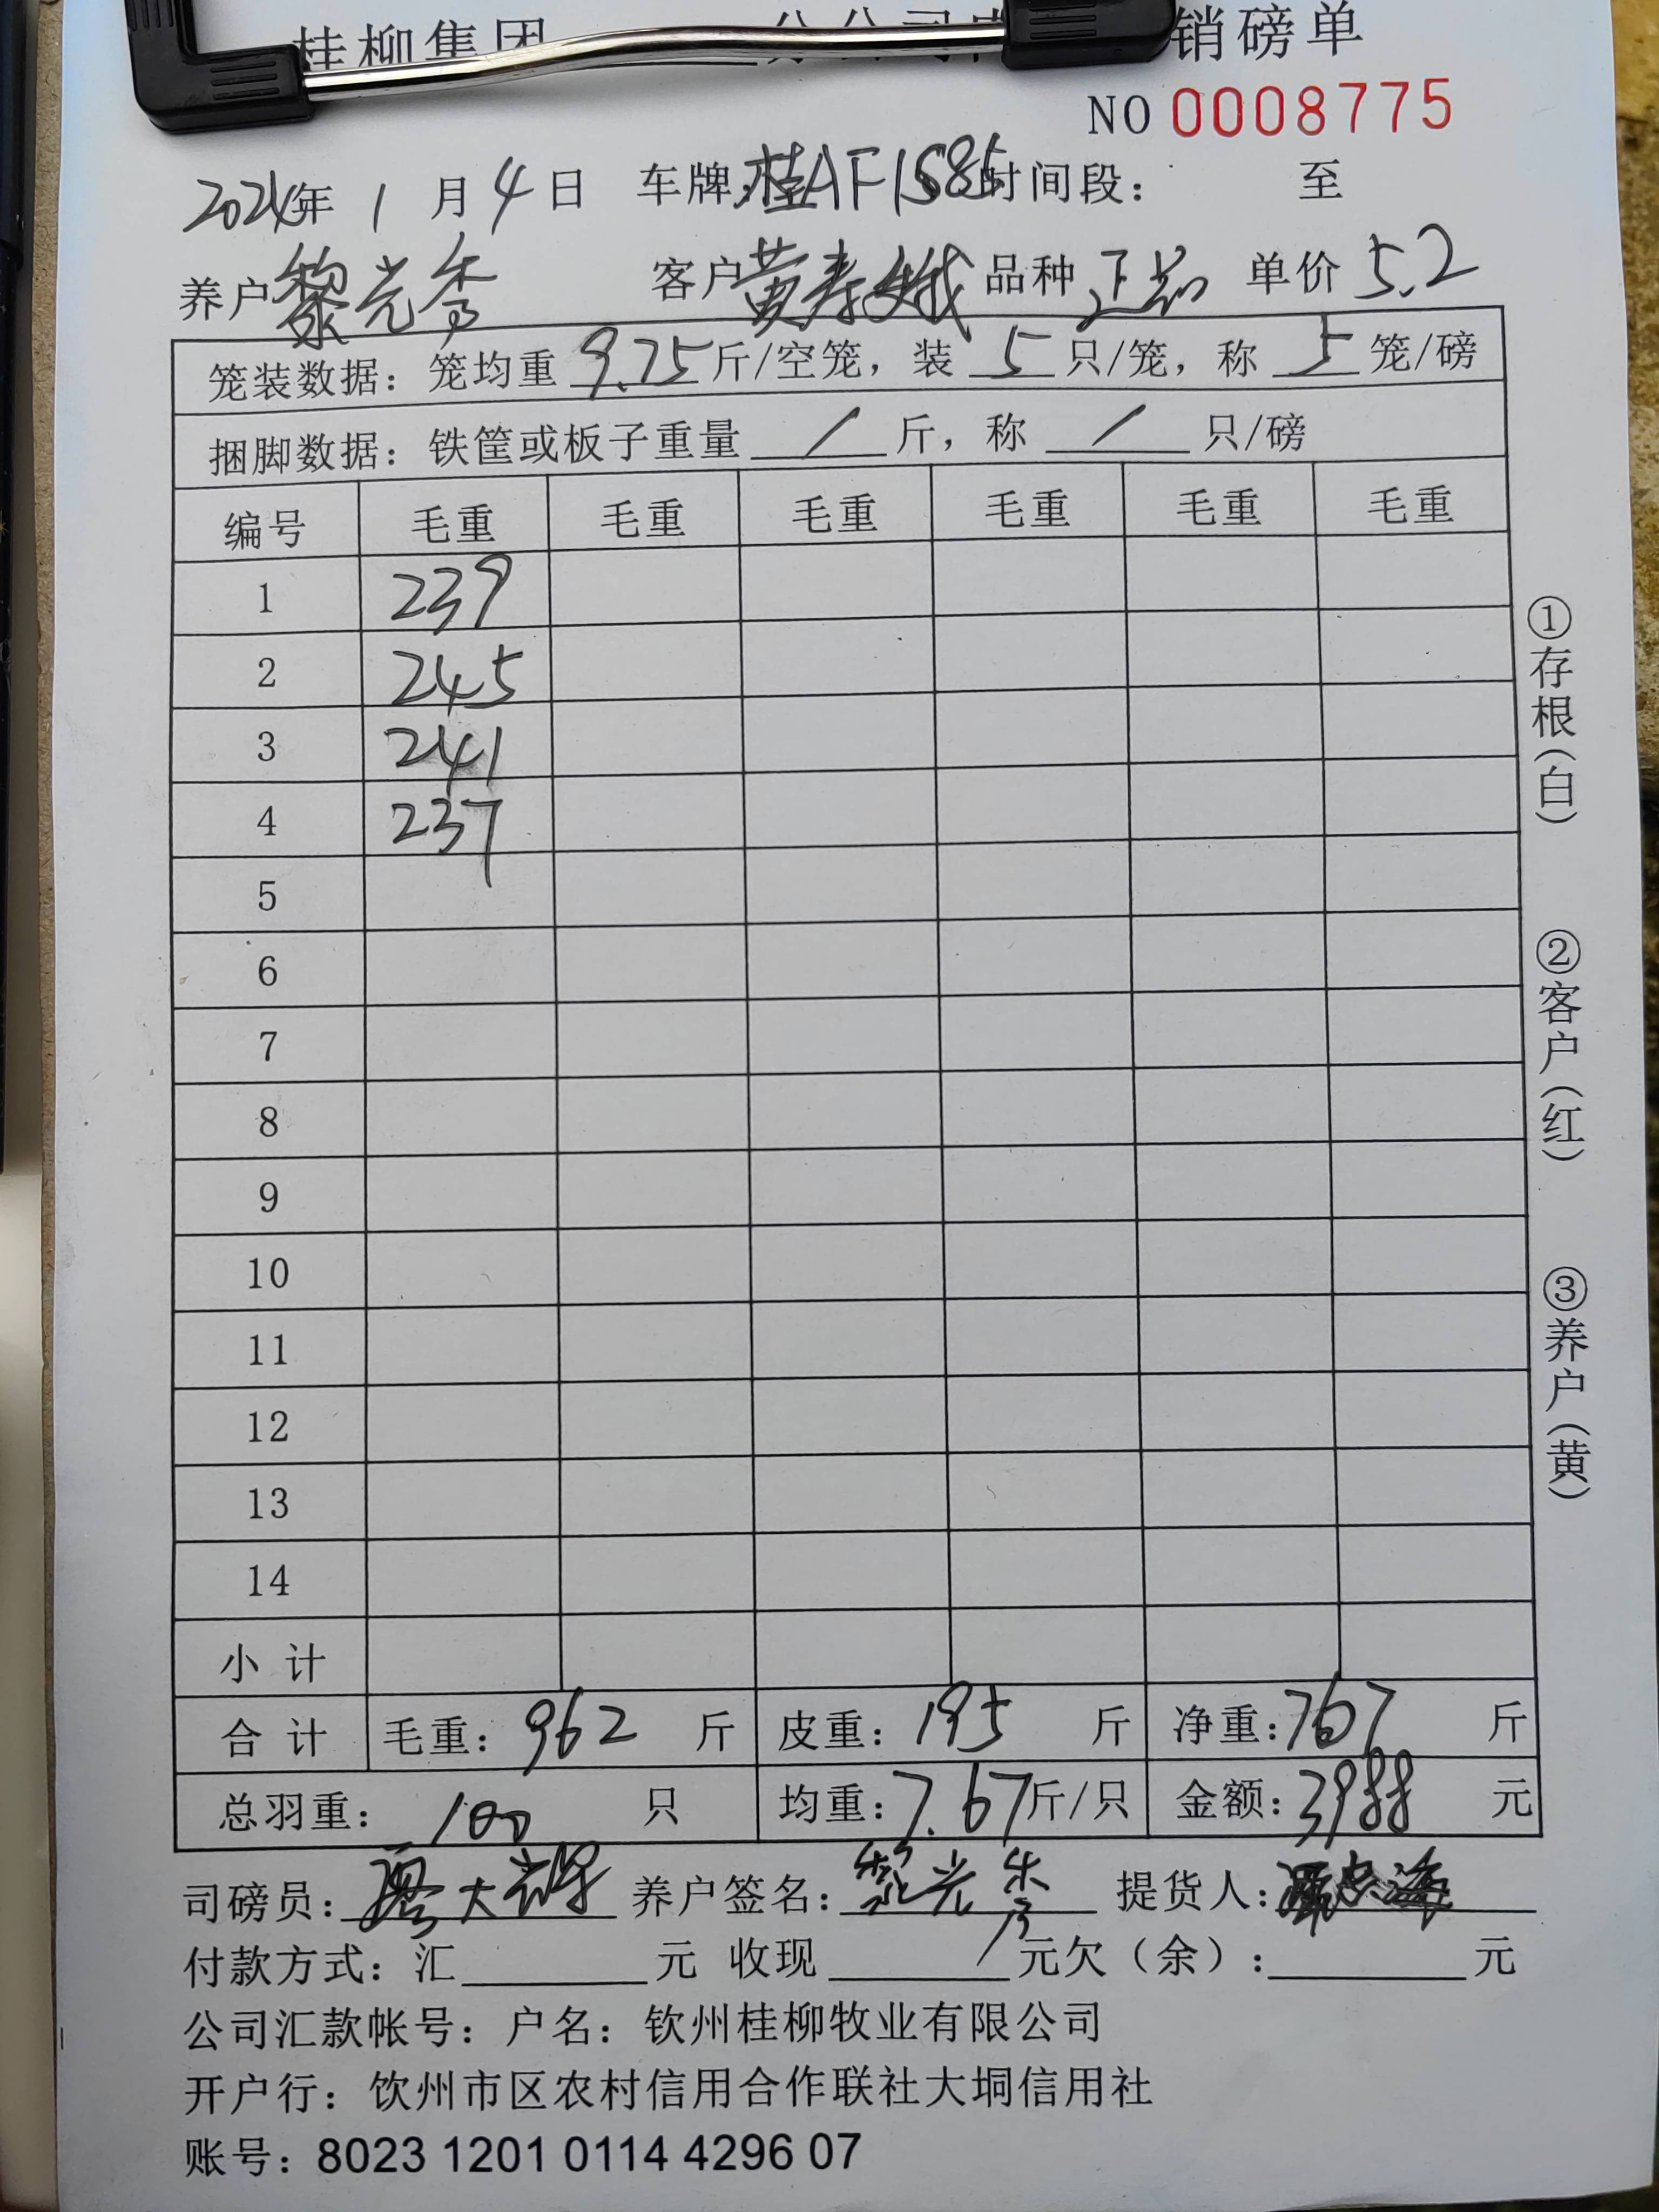 桂柳集团 分公司 销磅单
NO 0008775
2024年 1 月 4 日 车牌:桂AF1585 时间段: 至
养户 黎光秀 客户 黄寿娥 品种 正品 单价 5.2
笼装数据: 笼均重 9.75 斤/空笼, 装 5 只/笼, 称 5 笼/磅
捆脚数据: 铁筐或板子重量 / 斤, 称 / 只/磅
编号 毛重 毛重 毛重 毛重 毛重 毛重
1 239
2 245
3 241
4 237
5
6
7
8
9
10
11
12
13
14
小 计
合 计 毛重: 962 斤 皮重: 195 斤 净重: 767 斤
总羽重: 100 只 均重: 7.67 斤/只 金额: 3988 元
司磅员: 廖大 养户签名: 黎光秀 提货人:
付款方式: 汇 元 收现 元欠(余): 元
公司汇款帐号: 户名: 钦州桂柳牧业有限公司
开户行: 饮州市区农村信用合作联社大垌信用社
账号: 8023 1201 0114 4296 07
①存根(白)
②客户(红)
③养户(黄)